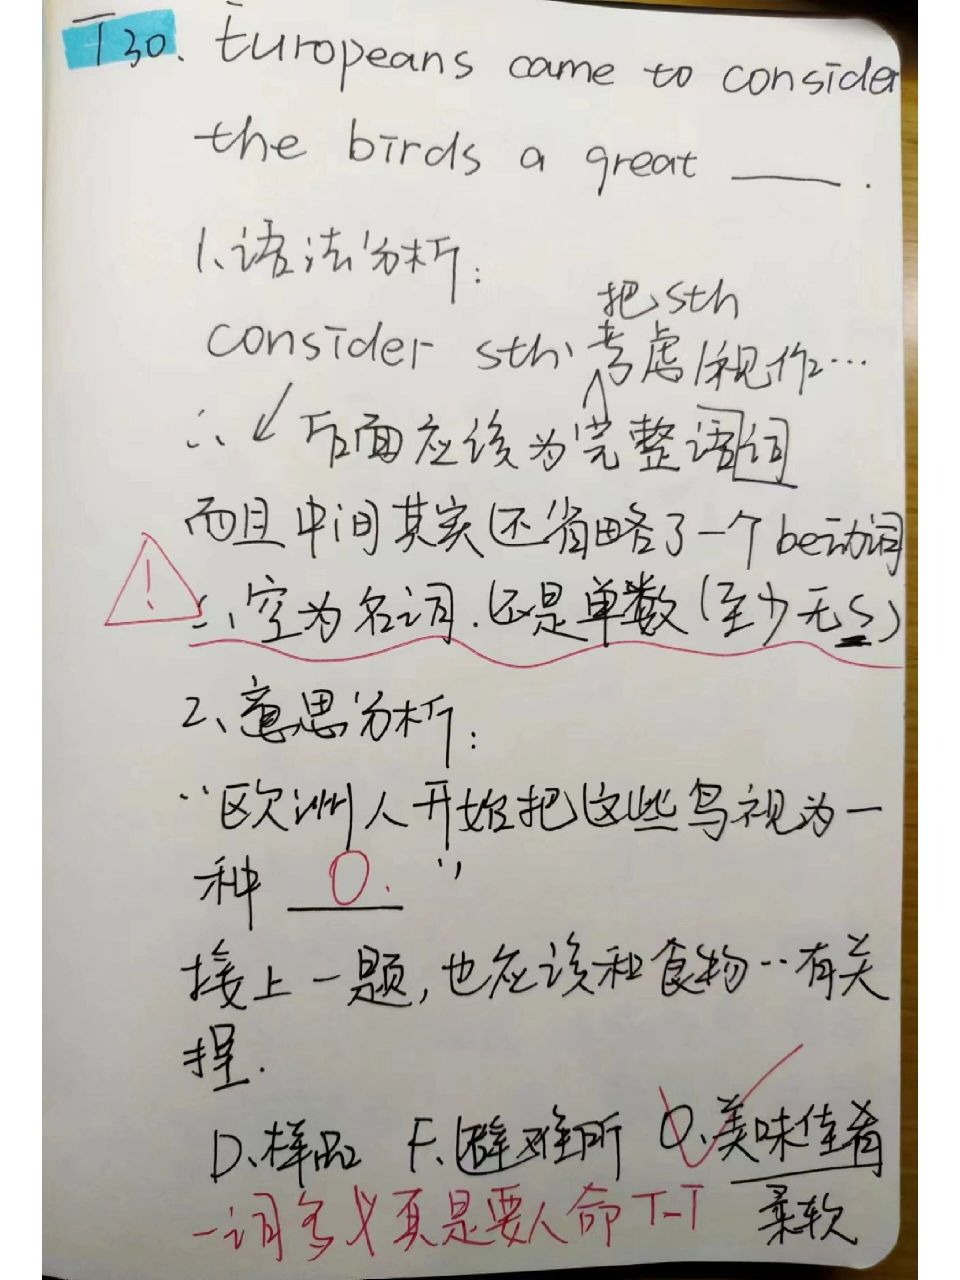 T30. Europeans came to consider
the birds a great ____.
1、语法分析：
把sth
consider sth、考虑/视作…
∴ 后面应该为完整语词
而且中间其实还省略了一个be动词
∴ 空为名词.还是单数(至少无s)
2、意思分析：
“欧洲人开始把这些鸟视为一
种 O. ”
接上一题,也应该和食物..有关
捏.
D、样品 F、避难所 O、美味佳肴
柔软
一词多义真是要人命T-T